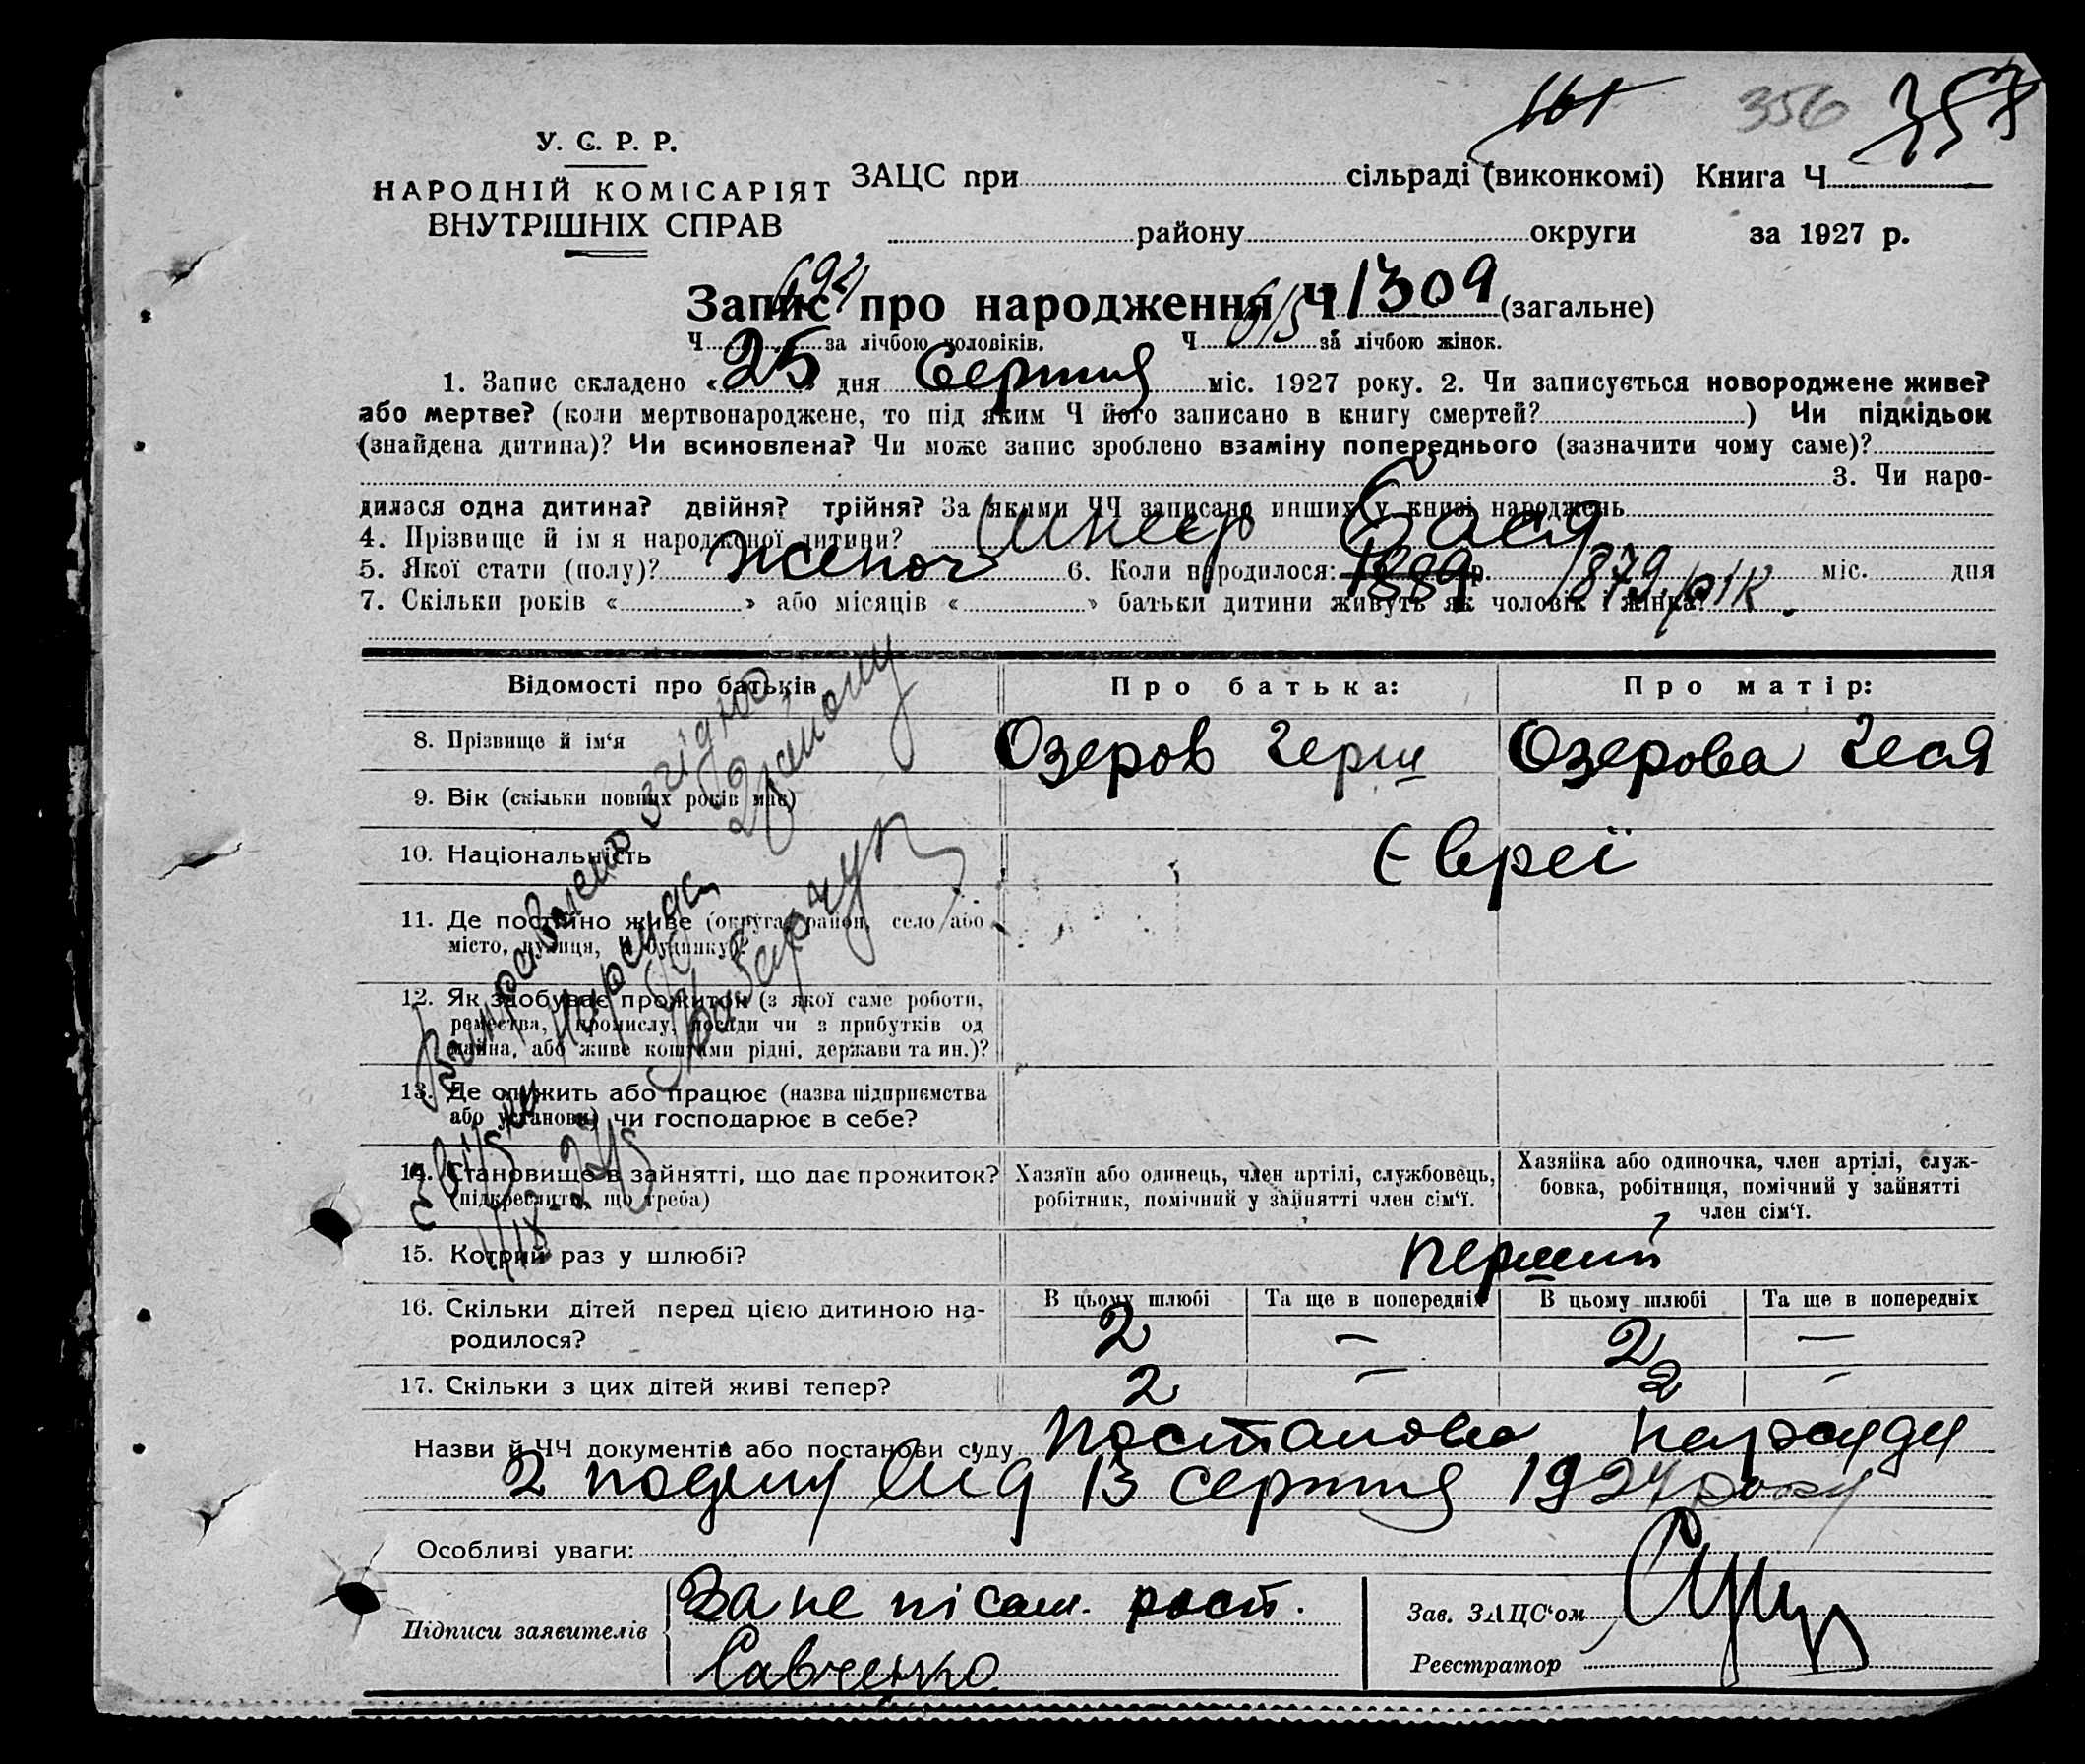 161 356 357
У. С. Р. Р.
НАРОДНІЙ КОМІСАРІЯТ
ВНУТРІШНІХ СПРАВ
ЗАЦС при сільраді (виконкомі) Книга Ч
району округи за 1927 р.
Запис про народження Ч 1309 (загальне)
Ч 694 за лічбою чоловіків. Ч 615 за лічбою жінок.
1. Запис складено « 25 » дня Серпня міс. 1927 року. 2. Чи записується новороджене живе?
або мертве? (коли мертвонароджене, то під яким Ч його записано в книгу смертей? ) Чи підкідьок
(знайдена дитина)? Чи всиновлена? Чи може запис зроблено взаміну попереднього (зазначити чому саме)?
3. Чи наро-
дилася одна дитина? двійня? трійня? За якими ЧЧ записано инших у книзі народжень
4. Прізвище й ім я народженої дитини? Бася
5. Якої стати (полу)? Жіноч 6. Коли народилося: 1889 р. 1879 рік. міс. дня
7. Скільки років « » або місяців « » батьки дитини живуть як чоловік і жінка?
Відомості про батьків Про батька: Про матір:
8. Прізвище й ім‘я Озеров Герш Озерова Геся
9. Вік (скільки повних років має)
10. Національність Євреї
11. Де постійно живе (округа, район, село або
місто, вулиця, Ч будинку)?
12. Як здобуває прожиток (з якої саме роботи,
ремества, промислу, посади чи з прибутків од
майна, або живе коштами рідні, держави та ин.)?
13. Де служить або працює (назва підприємства
або установи) чи господарює в себе?
14. Становище в зайнятті, що дає прожиток?
(підкреслити, що треба)
Хазяїн або одинець, член артілі, службовець,
робітник, помічний у зайнятті член сім‘ї.
Хазяйка або одиночка, член артілі, служ-
бовка, робітниця, помічний у зайнятті
член сім‘ї.
15. Котрий раз у шлюбі? перший
16. Скільки дітей перед цією дитиною на-
родилося?
В цьому шлюбі Та ще в попередніх В цьому шлюбі Та ще в попередніх
2 — 2 —
17. Скільки з цих дітей живі тепер? 2 — 2 —
Виправлено згідно
Назви й ЧЧ документів або постанови суду Постанова Нарсуду
2 від 13 серпня 1927 року
Особливі уваги:
Підписи заявителів За не písьм. розп.
Савченко
Зав. ЗАЦС‘ом
Реєстратор